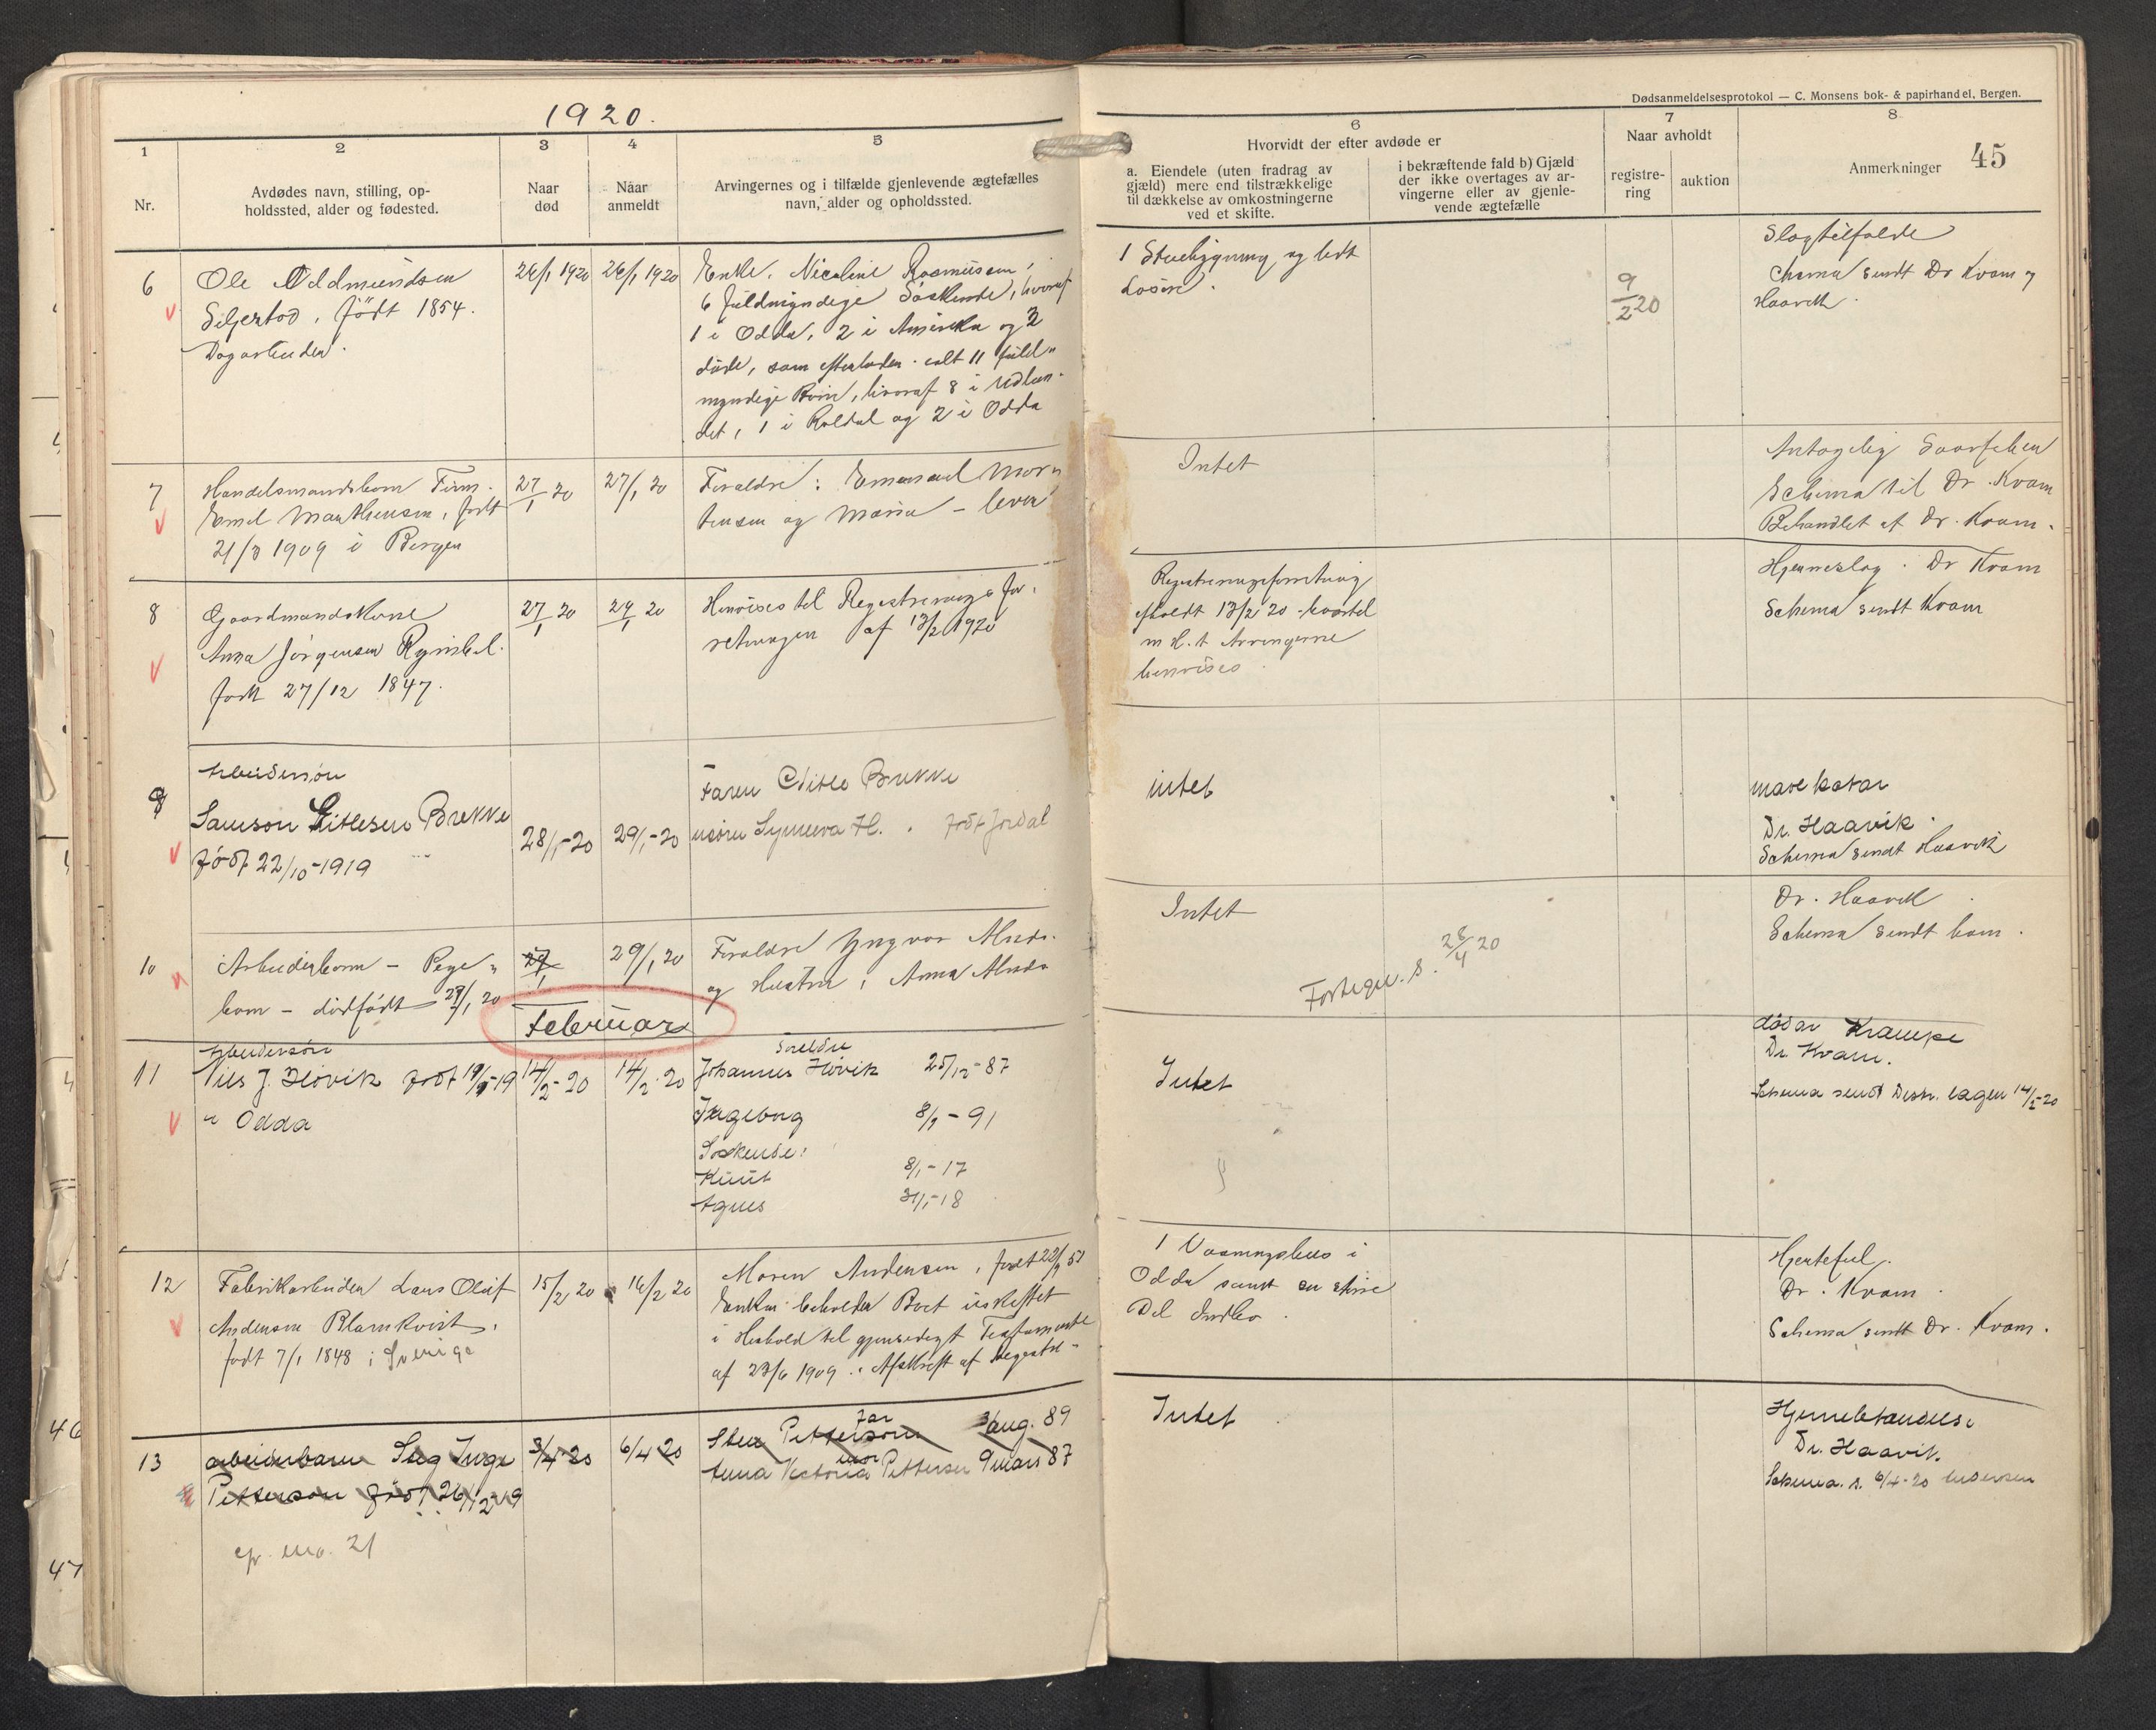 1920.
Dødsanmeldelsesprotokol — C. Monsens bok- & papirhandel, Bergen.
45
1
Nr.
2
Avdødes navn, stilling, op-
holdssted, alder og fødested.
3
Naar
død
4
Naar
anmeldt
5
Arvingernes og i tilfælde gjenlevende ægtefælles
navn, alder og opholdssted.
6
Hvorvidt der efter avdøde er
a. Eiendele (uten fradrag av
gjæld) mere end tilstrækkelige
til dækkelse av omkostningerne
ved et skifte.
i bekræftende fald b) Gjæld
der ikke overtages av ar-
vingerne eller av gjenle-
vende ægtefælle
7
Naar avholdt
registre-
ring
auktion
8
Anmerkninger
6
Ole Oddmundsen
født 1854.
Dagarbeider.
26/1 1920
26/1 1920
Enke, Nicoline Rasmussen,
6 fuldmyndige Søskende, hvoraf
1 i Odda, 2 i Amerika og 3
døde, som efterlader ialt 11 fuld-
myndige Børn, hvoraf 8 i Udlan-
det, 1 i Røldal og 2 i Odda
1 Stuebygning og lidt
Løsøre.
9/2 20
Slagtilfælde
Schema sendt Dr Kvam
Haavik
7
Handelsmandsbarn Finn
Emil Marthinsen, født
21/3 1909 i Bergen
27/1 20
27/1 20
Foraldre: Emanuel Mar-
tensen og Maria – lever
Intet
Antagelig
Schema til Dr. Kvam
Behandlet af Dr. Kvam.
8
Gaardmandskone
Anna Jørgensen
født 27/12 1847.
27/1 20
29/1 20
Henvises til Registreringsfor-
retningen af 13/2 1920
Registreringsforretning
afholdt 13/2 20 hvortil
m. H. t. Arvingerne
henvises
Hjerneslag. Dr Kvam
Schema sendt Kvam
9
Arbeidersøn
Samson Ditlesen Brekke
født 22/10-1919
28/1-20
29/1-20
Faren Ditle Brekke
moren Synneva H. født Jordal
intet
mave katar
Dr. Haavik.
Schema sendt Haavik
10
Arbeiderbarn – Pige-
barn – dødfødt 27/1 20
27/1
29/1 20
Foraldre Yngvar
og Hustru, Anna
Intet
28/4 20
Dr. Haavik
Schema sendt ham.
Februar
11
Arbeidersøn
Nils J. Høvik født
i Odda
14/2-20
14/2 20
Foreldre
Johannes Høvik 25/12-87
Ingeborg 8/9-91
Søskende:
Knut 8/1-17
Agnes 31/1-18
Intet
Krampe
Dr. Kvam.
Schema sendt Distr. lægen 14/2-20
12
Fabrikarbeider Lars Oluf
Andersen Blamkvist,
født 7/1 1848 i Sverige
15/2 20
16/2 20
Maren Andersen, født 22/9 51
Enken beholder Boet uskiftet
i Henhold til gjensidigt Testamente
af 23/6 1909. Afskrift af
1 Vaaningshus i
Odda samt en
Del Indbo.
Hjertefeil.
Dr. Kvam.
Schema sendt Dr. Kvam.
13
arbeiderbarn Inge
Petterson født 26/12 19
3/4 20
6/4 20
far
Sten Petterson aug. 89
mor
Anna Victoria Petterson 9 mars 87
Intet
Hjernebetændelse
Dr. Haavik.
Schema. s. 6/4-20
no. 21